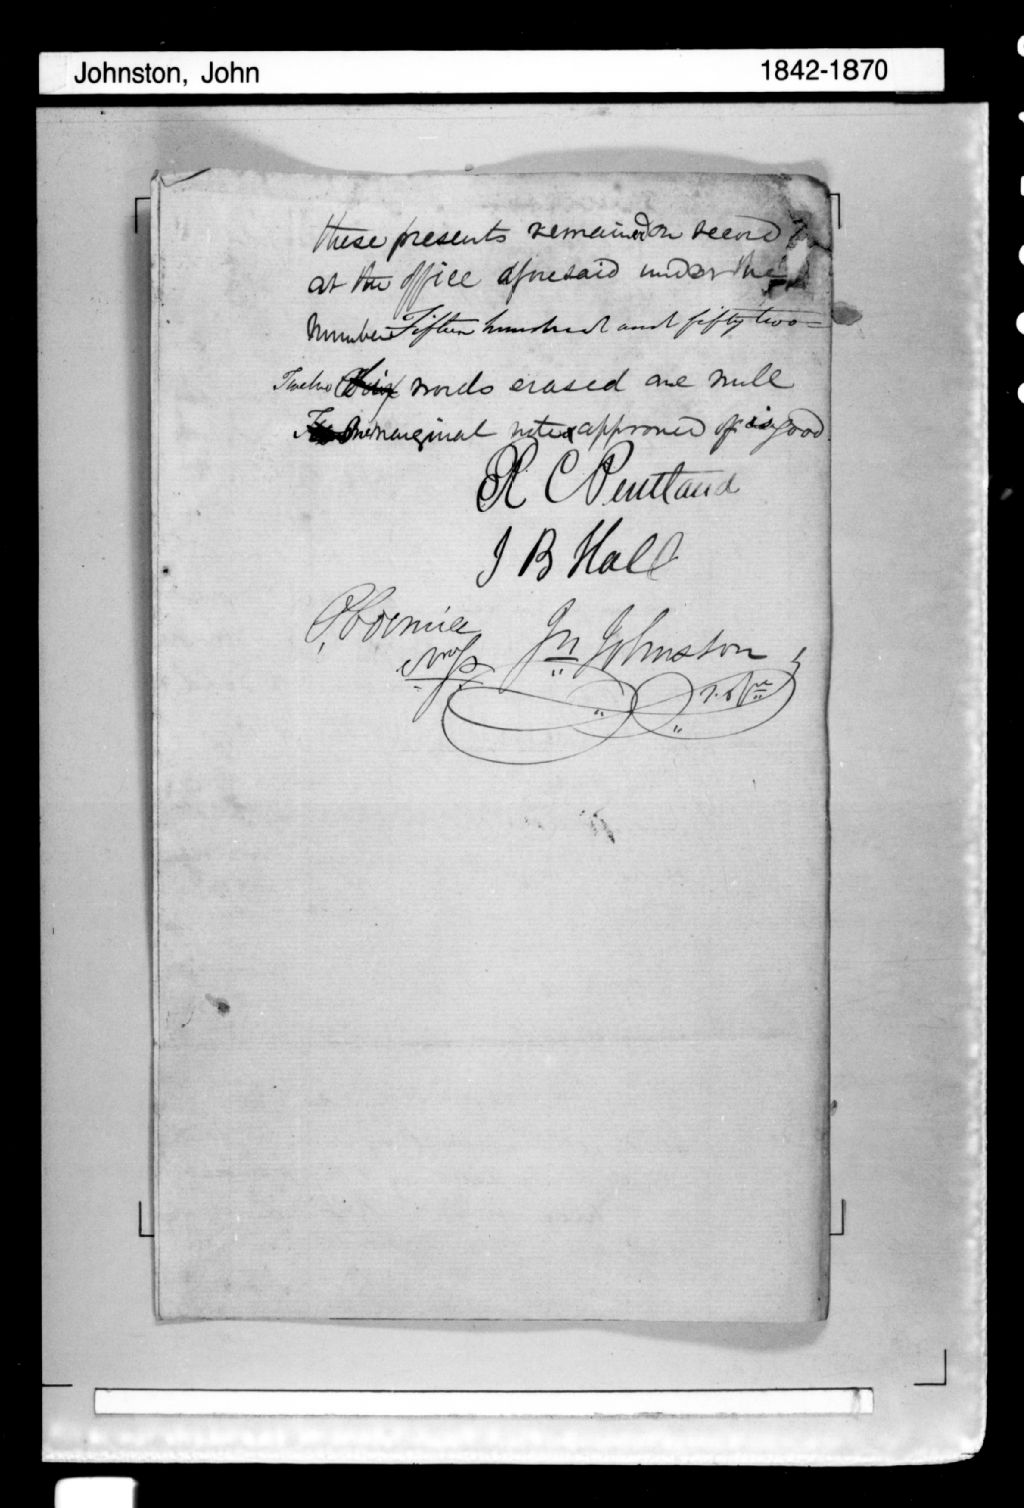 Johnston, John 1842-1870
these presents remained on record
at the office aforesaid under the
Number Fifteen hundred and fifty two =
Twelve words erased are null
One marginal note approved of is good
R C Pentland
J B Hall
Jn Johnston
N.P.